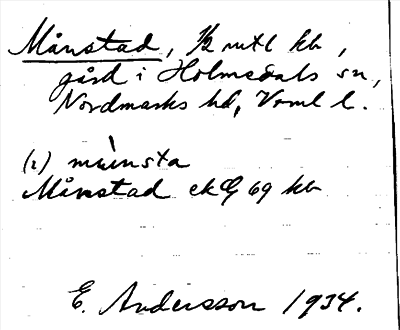 Månstad, 1/2 mtl kb,
gård i Holmedals sn,
Nordmarks hd, Vrml l.
(1) mùnsta
Månstad ekG 69 kb
E. Andersson 1934.